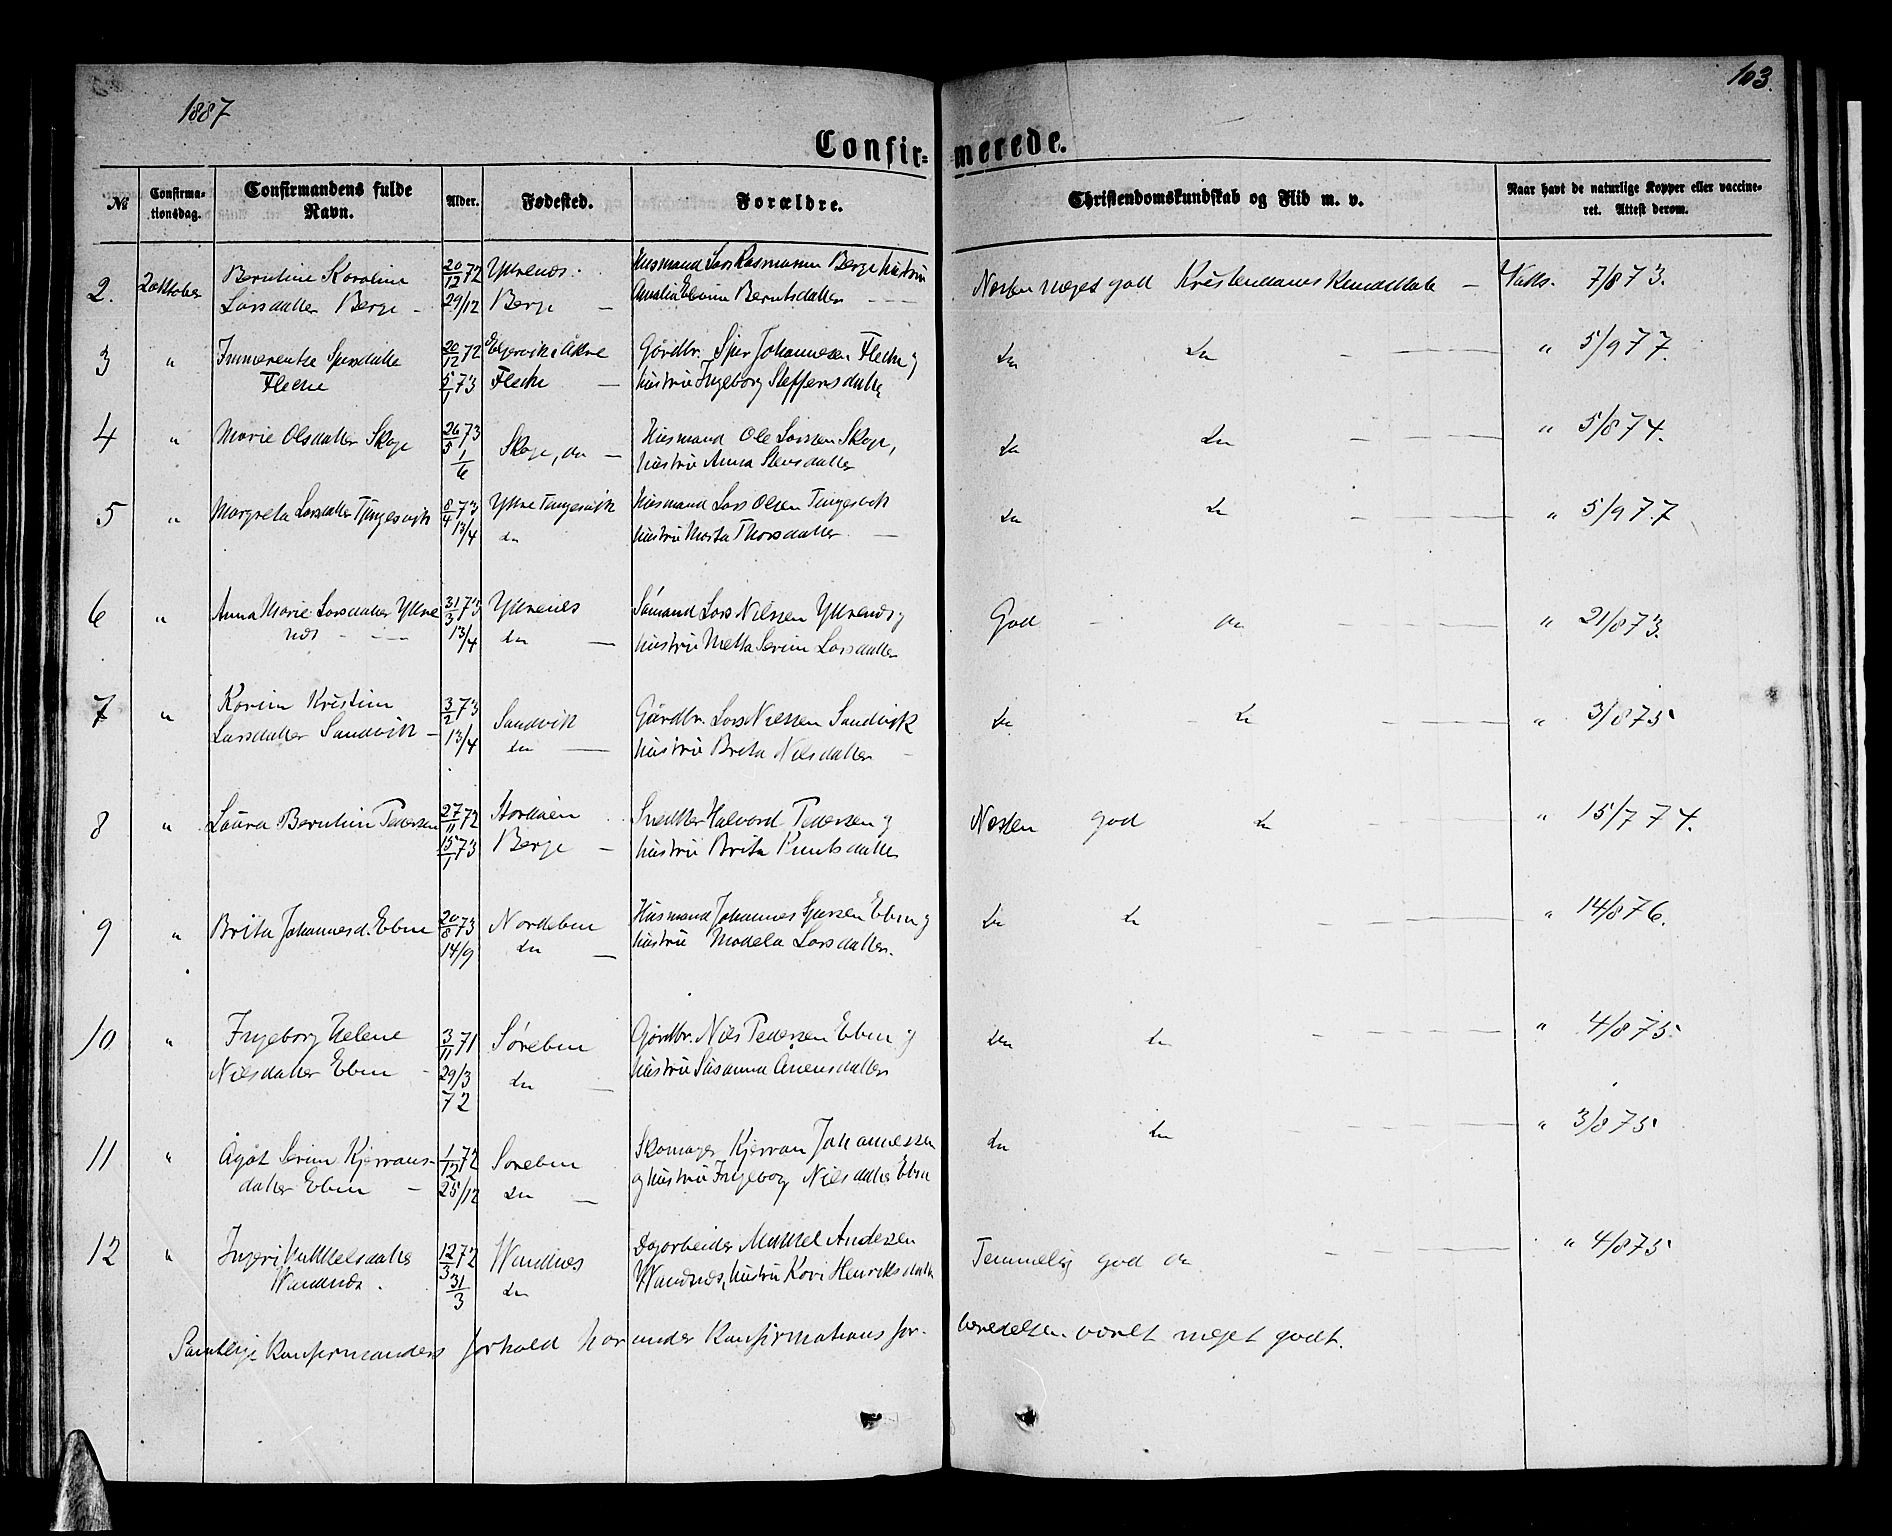 1887
103.
Confir- merede.
№
Confirma-
tionsdag.
Confirmandens fulde
Navn.
Alder.
Fødested.
Forældre.
Christendomskundskab og Flid m. v.
Naar havt de naturlige Kopper eller vaccine-
ret. Attest derom.
2. 2 oktober Berntine Karoline 20/12 72 Ytrenæs. Husmand Lars Rasmussen Berge hustru Næsten meget god Kristendomskundskab – Vaks. 7/8 73.
Larsdatter Berge – 29/12 Berge – Berntsdatter
3 " Fleche 20/12 72 Gårdbr. Sjur Johannesen Fleche og do do " 5/9 77.
5/1 73 Fleche – hustru Ingeborg Steffensdatter
4 " Marie Olsdatter Skoge 26/5 73 Skoge, do – Husmand Ole Larssen Skoge, do do " 5/8 74.
1/6 hustru Anna Stensdatter
5 " Margreta Larsdatter Tungesvik 8/4 73 Ytre Tungesvik Husmand Lars Olsen Tungesvik do do " 5/9 77
13/4 do hustru Marta Thorsdatter –
6 " Anna Marie Larsdatter Ytre 31/3 73 Ytrenes Sømand Lars Nilssen Ytrenæs og God do " 21/8 73.
næs 13/4 do – hustru Metta Serine Larsdatter
7 " Karine Kristine 3/2 73 Sandvik Gårdbr. Lars Nilssen Sandvik do do " 3/8 75
Larsdatter Sandvik – 13/4 do – hustru Brita Nilsdatter –
8 " Laura Berntine Pedersen 27/11 72 Stordøen Snedker Halvard Pedersen og Næsten god do " 15/7 74.
15/1 73 Berge – hustru Brita Knutsdatter
9 " Brita Johannesd. Ebne 73 Nordebne Husmand Johannes Sjursen Ebne og do do " 14/8 76.
14/9 do – hustru Madela Larsdatter.
10 " Ingeborg Helene 3/11 71 Sørebne Gårdbr. Nils Pedersen Ebne og do do " 4/8 75.
Nilsdatter Ebne – 29/3 do – hustru Susanna
72
11 " Ågåt Serine Kjervans- 1/12 72 Sørebne Skomager Kjervan Johannessen do do " 3/8 75
datter Ebne – 25/12 do – og hustru Ingeborg Nilsdatter Ebne
12 " Ingeri Mikkelsdatter 12/3 72 Vandnes Dagarbeider Mikkel Andersen Temmelig god do " 4/8 75
Vandnæs. 31/3 do Vandnæs, hustru Kari Henriksdatter
Samtlige konfirmanders forhold har under konfirmationsfor- beredelsen været meget godt.